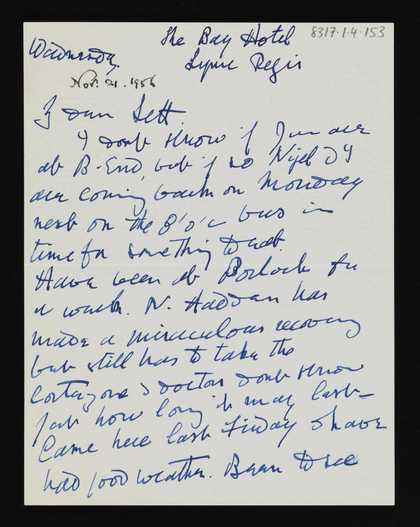 The Bay Hotel
8317.1.4.153
Wednesday
Lyme Regis
Nov. 21. 1956
dear Sett.
I dont know if you are
at B-End, but if so Nigel & I
are coming back on Monday
next on the 8'o'c bus in
time for something to eat.
Have been at Porlock for
a week. N. Haddan has
made a miraculous recovery
but still has to take the
Cortizone & doctors dont know
just how long it may last -
Came here last Friday & have
had good weather. Been to see